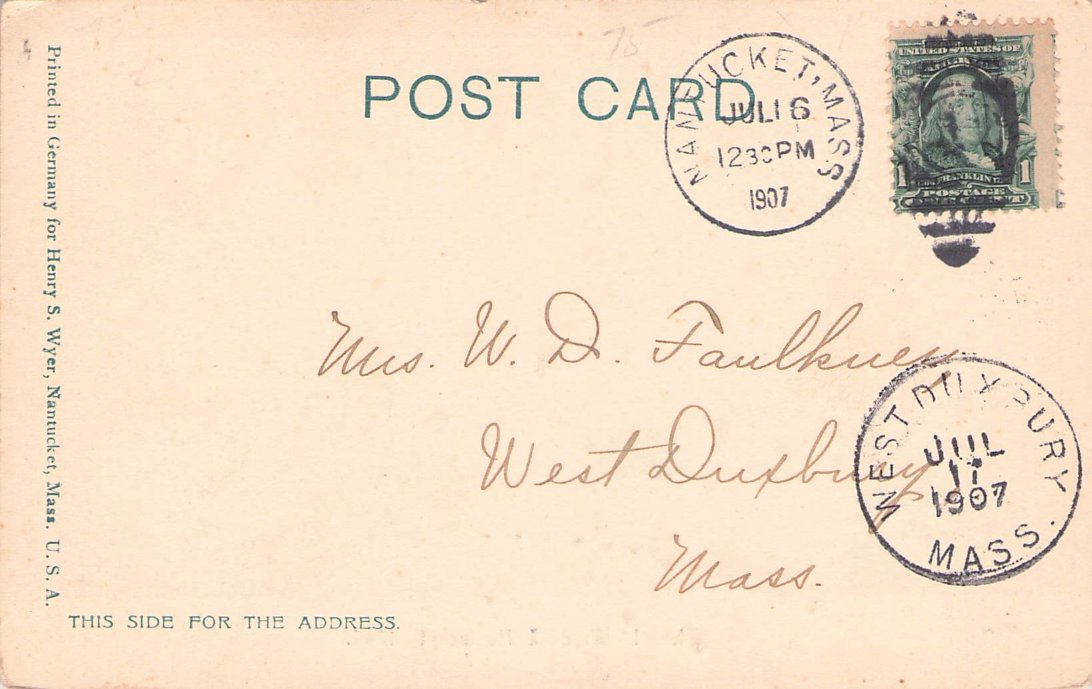 POST CARD
NANTUCKET, MASS
JUL 16
1230PM
1907
UNITED STATES OF
FRANKLIN
1 POSTAGE 1
ONE CENT
Mrs. W. D. Faulkner
West Duxbury
Mass.
WEST DUXBURY
JUL
17
1907
MASS.
Printed in Germany for Henry S. Wyer, Nantucket, Mass. U. S. A.
THIS SIDE FOR THE ADDRESS.
75